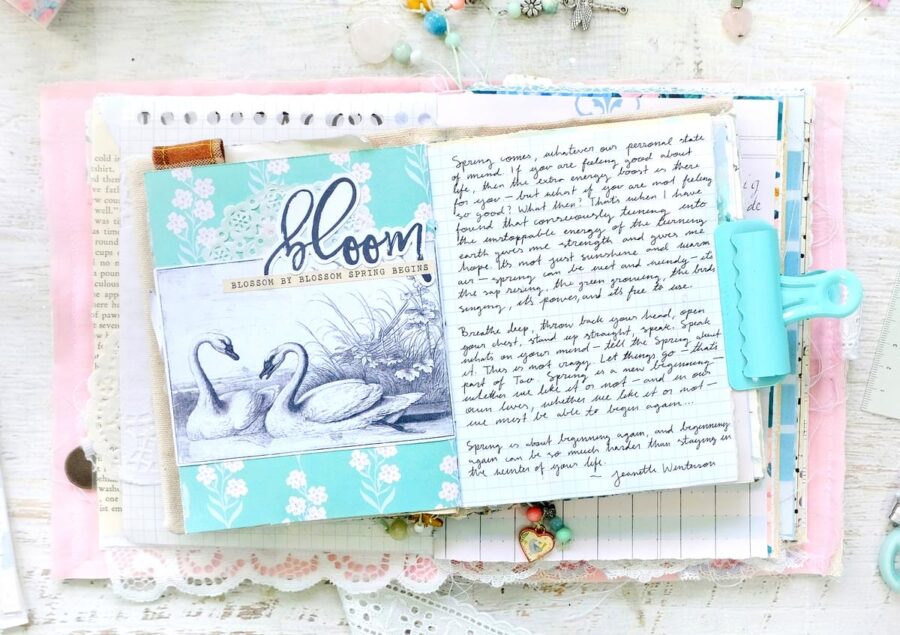 bloom
BLOSSOM BY BLOSSOM SPRING BEGINS
Spring comes, whatever our personal state
of mind. If you are feeling good about
life, then the extra energy boost is there
for you – but what if you are not feeling
so good? What then? That's when I have
found that consciously tuning into
the unstoppable energy of the turning
earth gives me strength and gives me
hope. It's not just sunshine and warm
air – spring can be wet and windy – it's
the sap rising, the green growing, the birds
singing, it's power, and it's free to use.
Breathe deep, throw back your head, open
your chest, stand up straight, speak. Speak
what's on your mind – tell the Spring about
it. This is not crazy. Let things go – that's
part of Tao. Spring is a new beginning –
whether we like it or not – and in our
own lives, whether we like it or not –
we must be able to begin again...
Spring is about beginning again, and beginning
again can be so much harder than staying in
the winter of your life.
– Jeanette Winterson